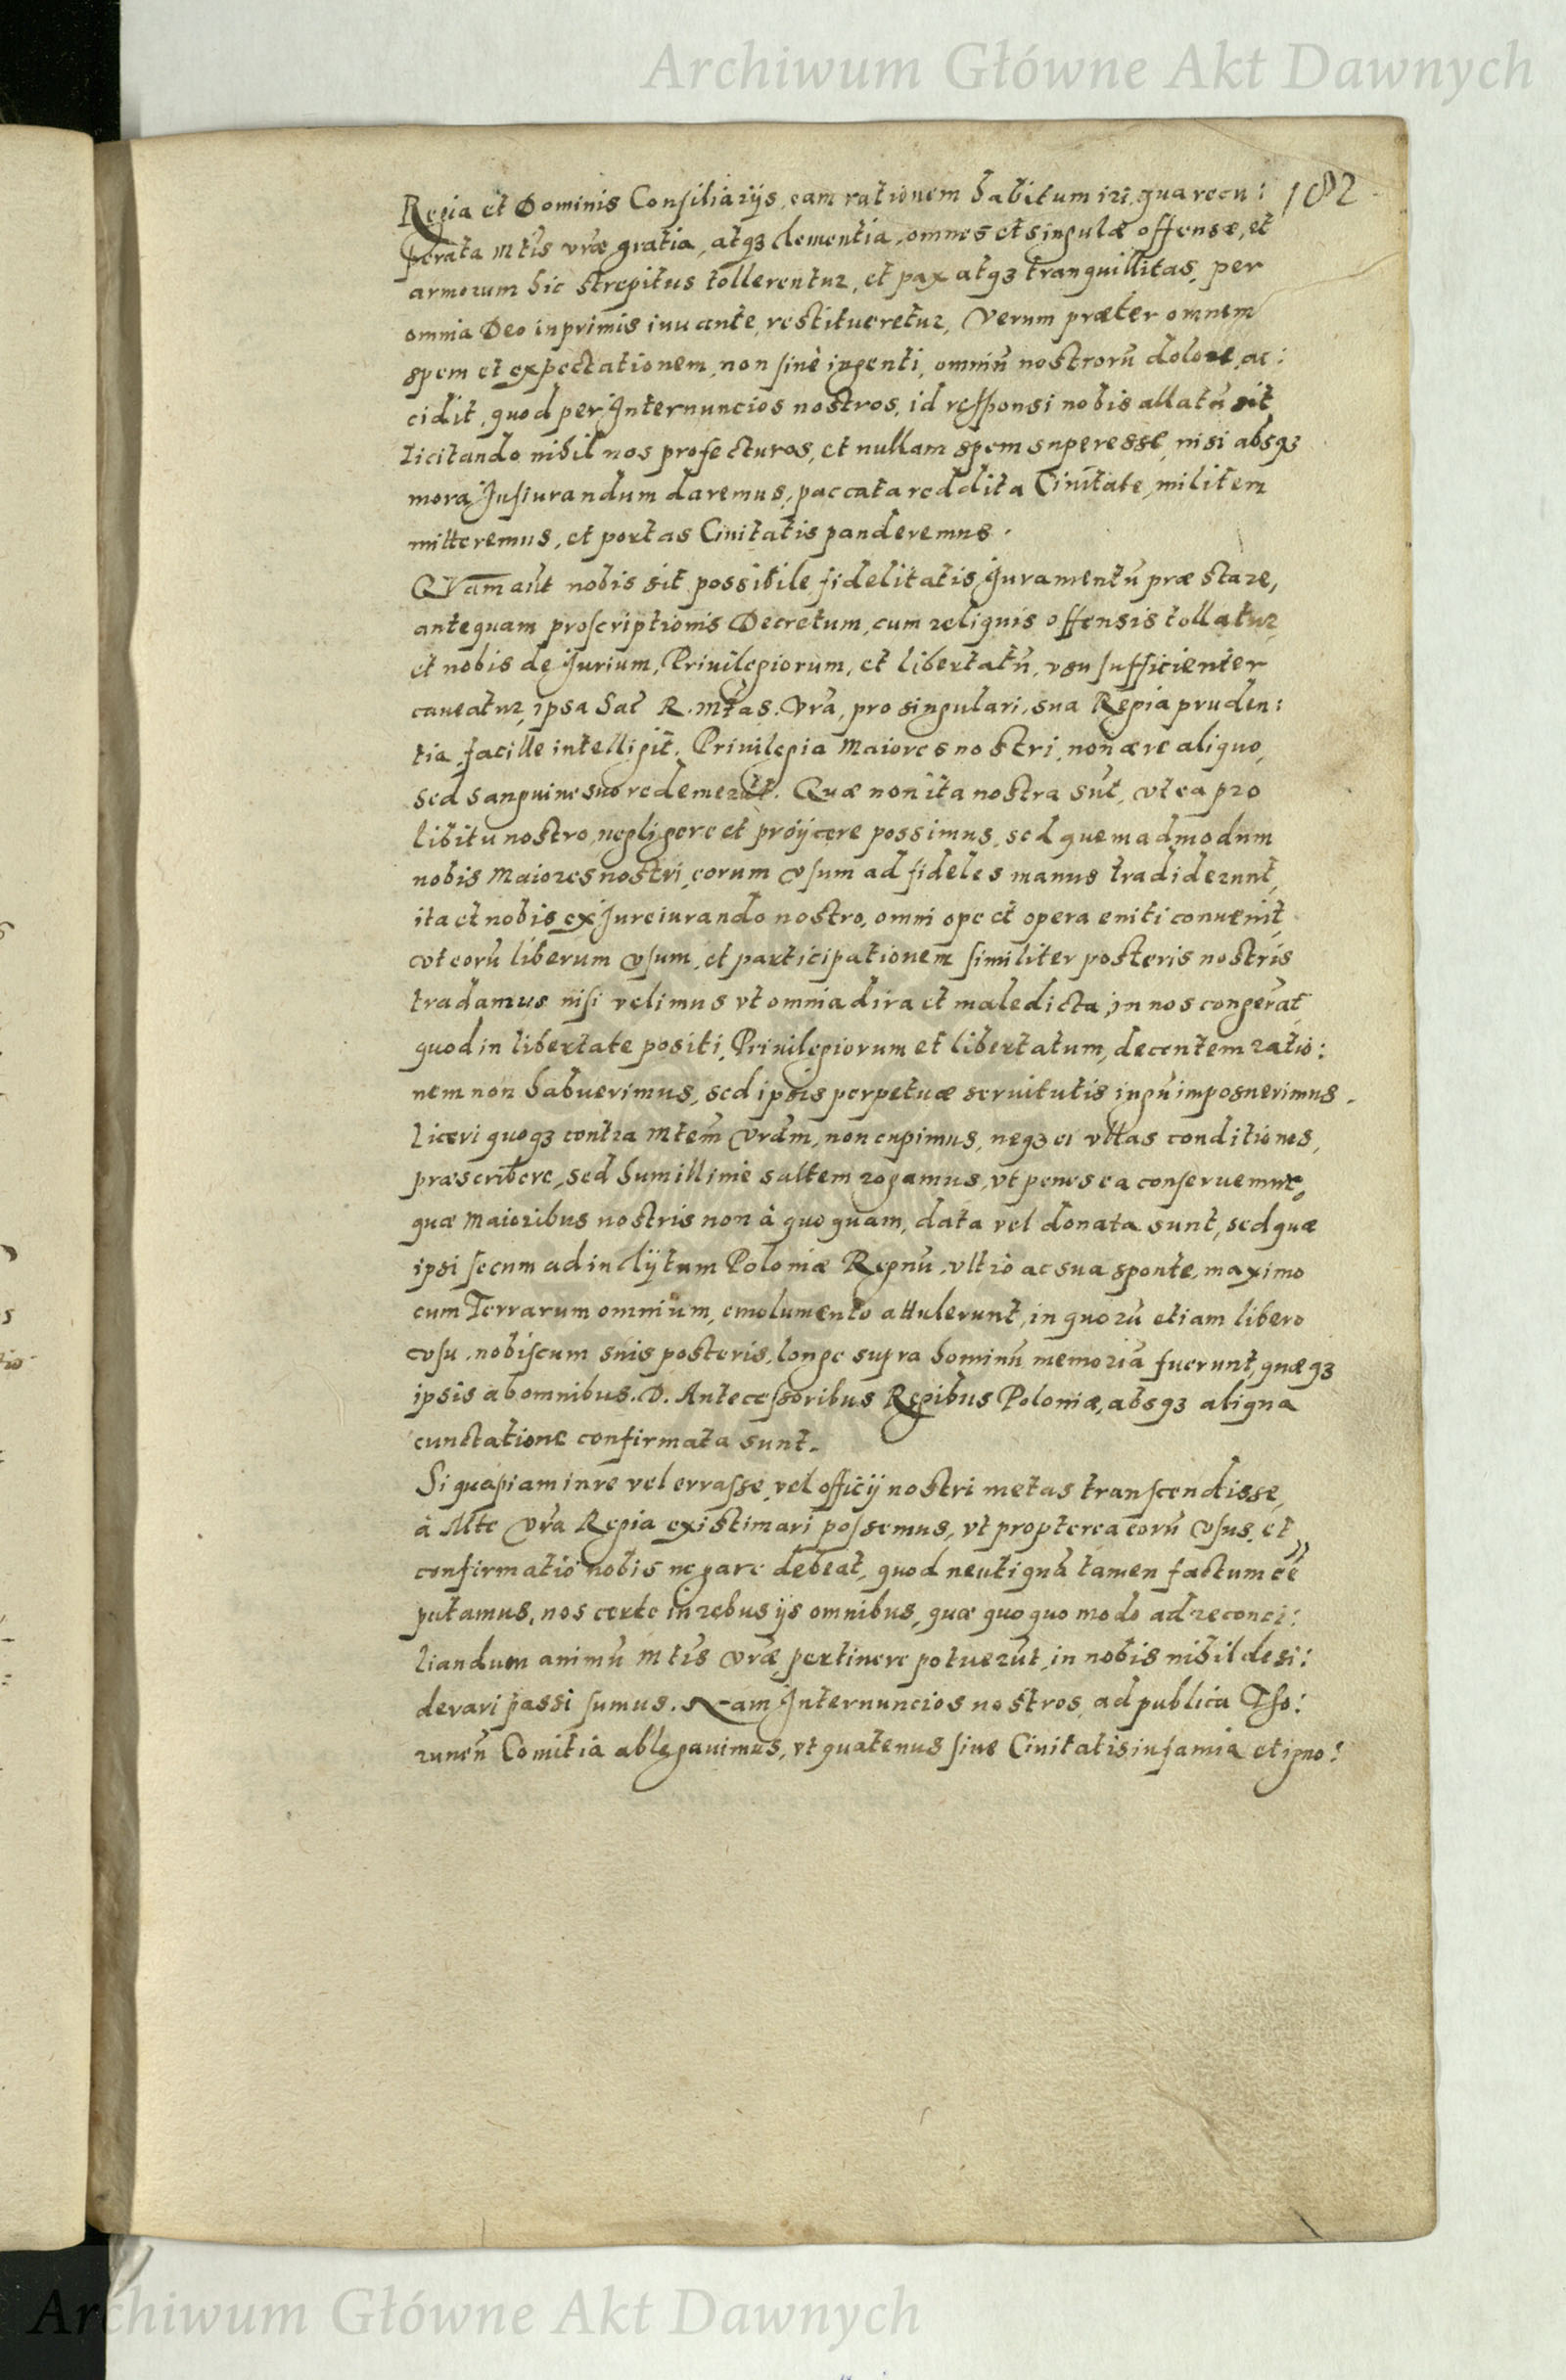 Archiwum Główne Akt Dawnych
182
Regia et Dominis Consiliarijs, eam rationem habitum iri, qua recu:
perata Mtis vrae gratia, atqz clementia, omnes et singulae offensae, et
armorum hic strepitus tollerentur, et pax atqz tranquillitas, per
omnia Deo inprimis iuuante, restitueretur, Verum praeter omnem
spem et expectationem, non sine ingenti, omniũ nostrorũ dolore, ac:
cidit, quod per Internuncios nostros, id responsi nobis allatũ sit,
licitando nihil nos profecturos, et nullam spem superesse, nisi absqz
mora Iusiurandum daremus, paccata reddita Ciuitate, militem
mitteremus, et portas Ciuitatis panderemus.
Quam aũt nobis sit possibile fidelitatis Iuramentũ praestare,
antequam proscriptionis Decretum, cum reliquis offensis tollatur,
et nobis de Iurium, Priuilegiorum, et libertatũ, vsu sufficienter
caueatur, ipsa Sac R. Mtas. Vra, pro singulari, sua Regia pruden:
tia, facille intelligit. Priuilegia Maiores nostri, non aere aliquo,
sed sanguine suo redemerũt. Quae non ita nostra sũt, vt ea pro
libitu nostro, negligere et proijcere possimus, sed quemadmodum
nobis Maiores nostri, eorum vsum ad fideles manus tradiderunt,
ita et nobis ex Iureiurando nostro, omni ope et opera eniti conuenit,
vt eorũ liberum vsum, et participationem similiter posteris nostris
tradamus nisi velimus vt omnia dira et maledicta, in nos congerãt,
quod in libertate positi, Priuilegiorum et libertatum, decentem ratio:
nem non habuerimus, sed ipsis perpetuae seruitutis iugũ imposuerimus.
Liceri quoqz contra Mtem Vram, non cupimus, neqz ei vllas conditiones,
praescribere, sed humillime saltem rogamus, vt penes ea conseruemur,
quae Maioribus nostris non à quoquam, data vel donata sunt, sed quae
ipsi secum ad inclijtum Poloniae Regnũ, vltro ac sua sponte, maximo
cum Terrarum omnium, emolumento attulerunt, in quorũ etiam libero
vsu, nobiscum suis posteris, longe supra hominũ memoriã fuerunt, quaeqz
ipsis ab omnibus. D. Antecessoribus Regibus Poloniae, absqz aliqua
cunctatione confirmata sunt.
Si quapiam in re vel errasse, vel officij nostri metas transcendisse,
à Mte Vra Regia existimari possemus, vt propterea eorũ vsus, et
confirmatio nobis negare debeat, quod neutiquã tamen factum eẽ
putamus, nos certe in rebus ijs omnibus, quae quoquo modo ad reconci:
liandum animũ Mtis Vrae, pertinere potuerũt, in nobis nihil desi:
derari passi sumus. Nam Internuncios nostros, ad publica Tho:
runeñ Comitia ablegauimus, vt quatenus sine Ciuitatis infamia et igno:
Archiwum Główne Akt Dawnych